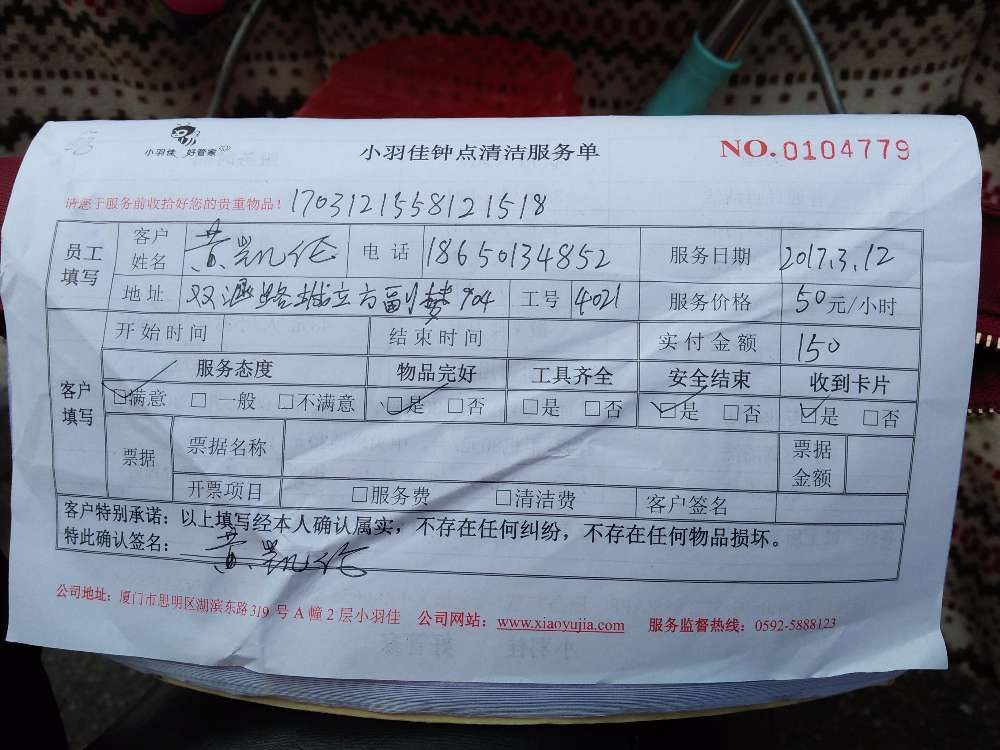 小羽佳 好管家
小羽佳钟点清洁服务单
NO.0104779
请您于服务前收拾好您的贵重物品! 1703121558121518
员工填写 客户姓名 黄凯伦 电话 18650134852 服务日期 2017.3.12
地址 双涵路城立方副楼904 工号 4021 服务价格 50元/小时
客户填写 开始时间 结束时间 实付金额 150
服务态度 物品完好 工具齐全 安全结束 收到卡片
☑满意 □一般 □不满意 ☑是 □否 □是 □否 ☑是 □否 ☑是 □否
票据 票据名称 票据金额
开票项目 □服务费 □清洁费 客户签名
客户特别承诺:以上填写经本人确认属实,不存在任何纠纷,不存在任何物品损坏。
特此确认签名: 黄凯伦
公司地址:厦门市思明区湖滨东路319号A幢2层小羽佳 公司网站:www.xiaoyujia.com 服务监督热线:0592-5888123